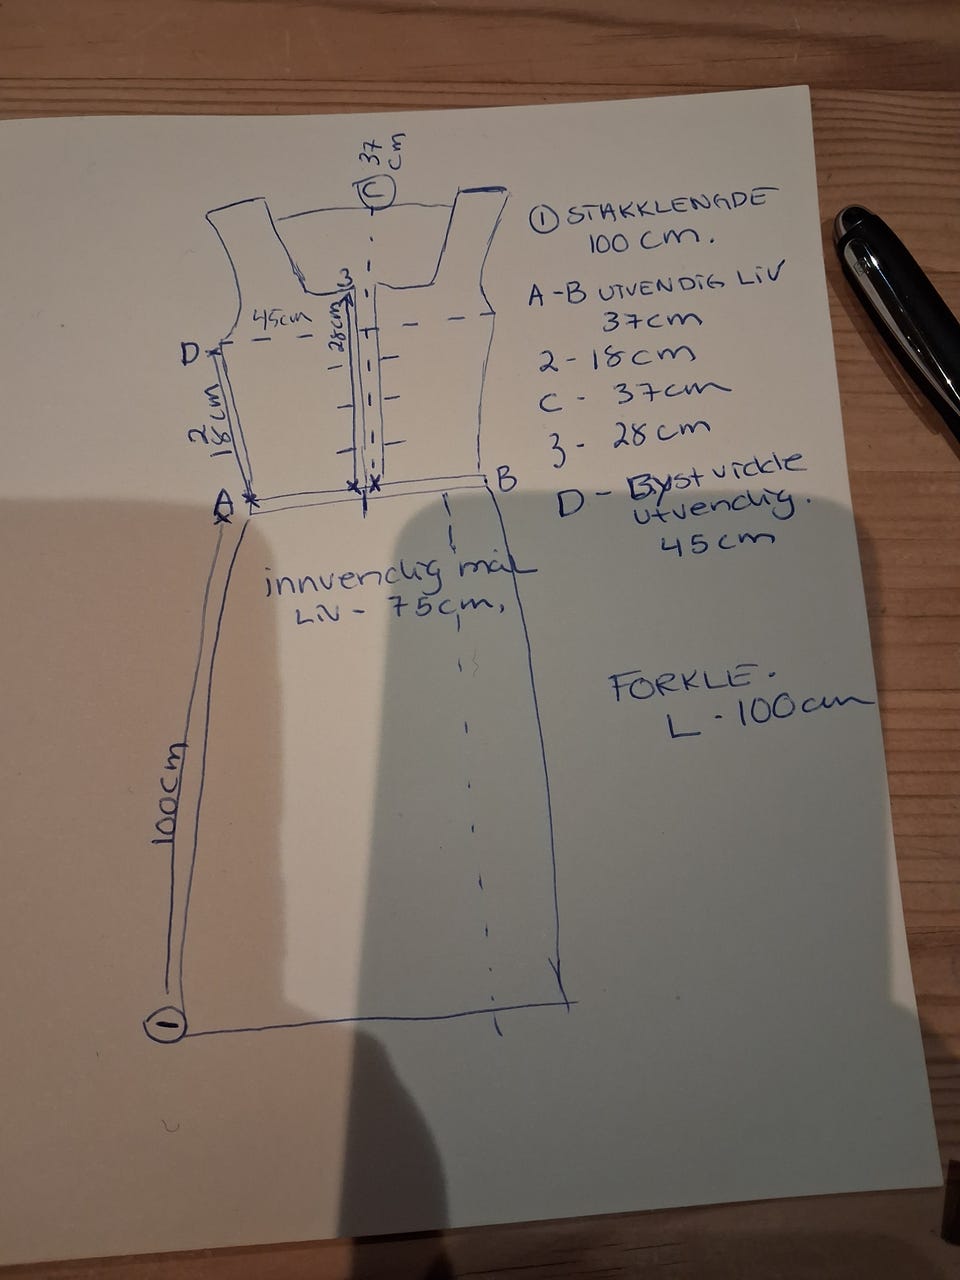 37
cm
C
① STAKKLENGDE
100 cm.
3
A-B UTVENDIG LIV
37cm
45cm
28cm
D
2-18cm
C - 37cm
2
18cm
3 - 28cm
A
B
D - Bystvickle
utvendig.
45cm
innvendig mål
LIV - 75cm.
FORKLE.
L - 100cm
100cm
①